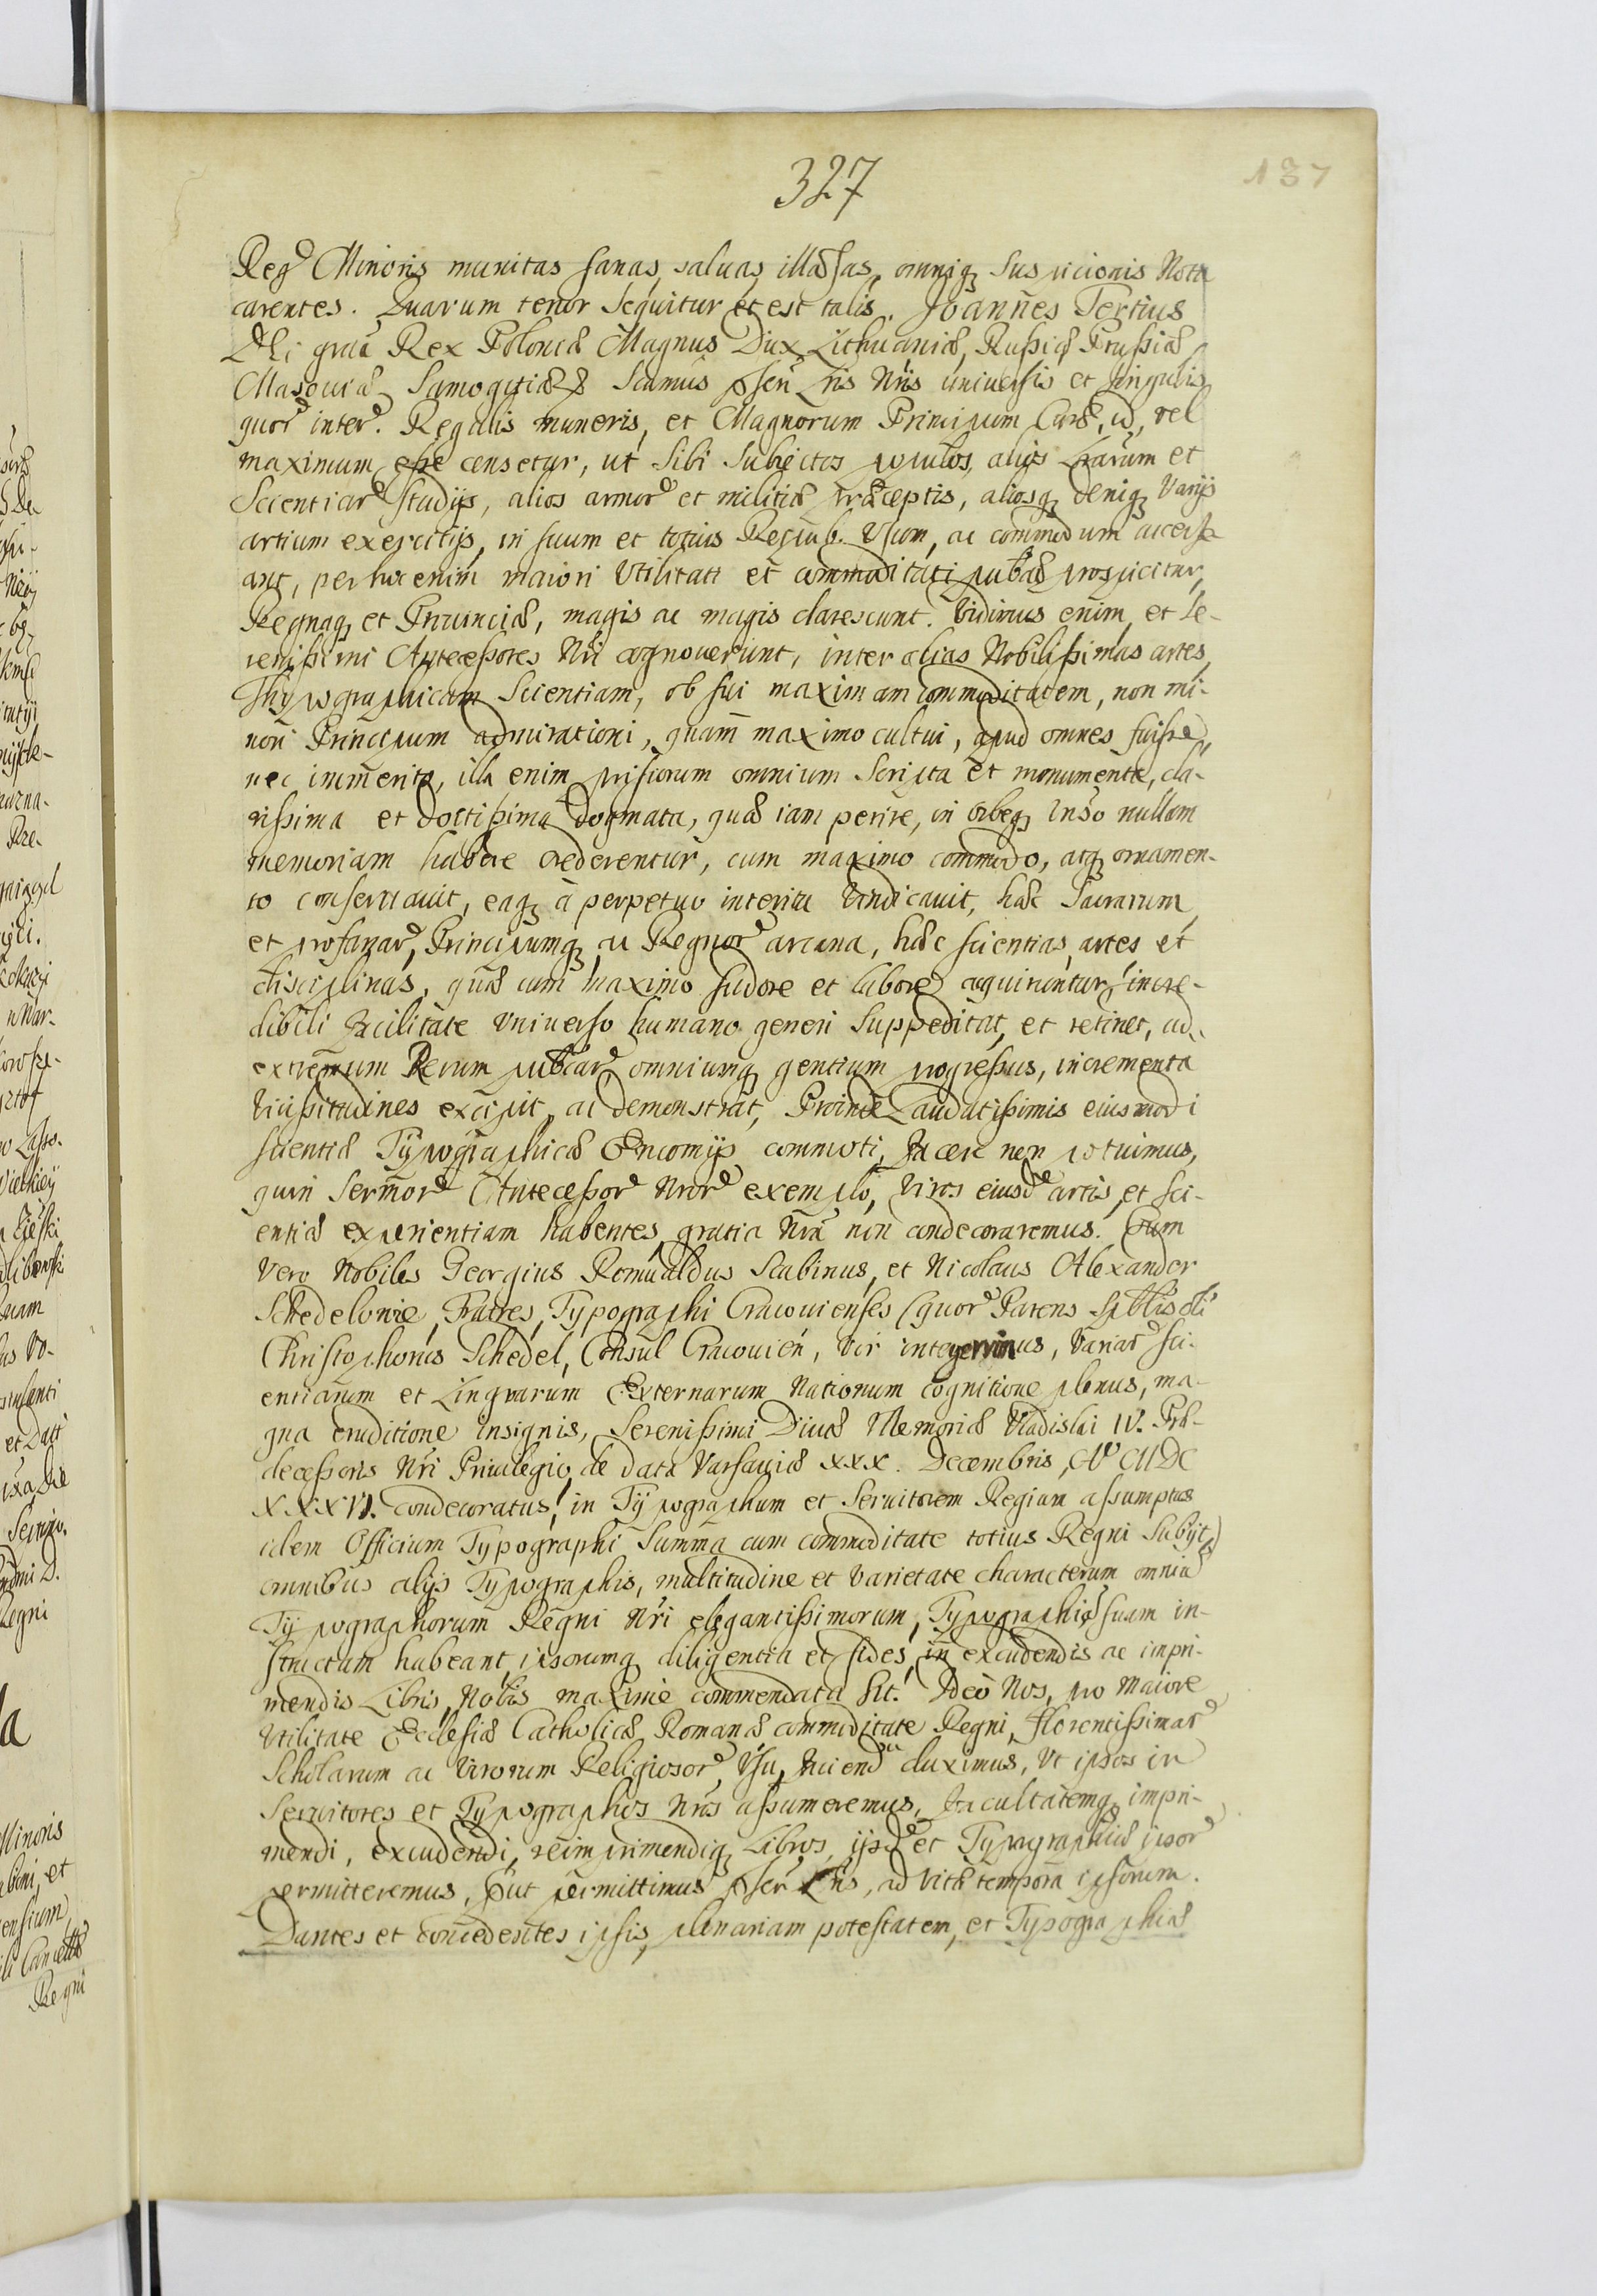 327
137
Regɂ Minoris munitas sanas, saluas, illæsas, omniq; Suspicionis Nota
carentes. Quarum tenor Sequitur et est talis. Joannes Tertius
Dei graã Rex Poloniæ Magnus Dux Lithuaniæ, Russiæ Prussiæ
Masouiæ Samogitiæ & Scimus Lris Nris uniuersis et singulis
quorɂ interɂ. Regalis muneris, et Magnorum Principum Curæ, id, vel
maximum esse censetur, ut Sibi Subiectos populos, alijs Lrarum et
Scientiarɂ studijs, alios armorɂ et militiæ præceptis, aliosq; deniq; Varijs
artium exercitijs, in suum et totius Reipub. Usum, ac commodum
ant, per hoc enim maiori Utilitati et commoditati pubcæ prospicitur,
Regnaq; et Prouinciæ, magis ac magis clarescunt. Vidimus enim, et Se-
renissimi Antecessores Nri cognouerunt, inter alias Nobilissimas artes,
Thypographicam Scientiam, ob sui maximam commoditatem, non mi-
nori Principum admirationi, quam maximo cultui, apud omnes fuisse,
nec immerito, illa enim priscorum omnium Scripta et monumenta, cla-
rissima et doctissima Dogmata, quæ iam perire, in orbeq; nullam
memoriam habere crederentur, cum maximo commodo, atq; ornamen-
to conseruauit, eaq; à perpetuo interitu Vindicauit, hæc Sacrarum
et profanarɂ, Principumq; ac Regnorɂ arcana, hæc scientias, artes et
disciplinas, quæ cum maximo sudore et labore acquiruntur, incre-
dibili facilitate Vniuerso humano generi Suppeditat, et retinet, ad
extremum Rerum pubcarɂ omniumq; gentium progressus, incrementa
Vicissitudines excipit, ac demonstrat, Proinde Laudatissimis eiusmodi
scientiæ Typographicæ Encomijs commoti, facere non potuimus,
quin Sermorɂ Antecessorɂ Nrorɂ exemplo, Viros eiusdɂ artis, et sci-
entiæ experientiam habentes, gratia Nrã non condecoraremus. Cum
Vero Nobiles Georgius Romualdus Scabinus, et Nicolaus Alexander
Schedelowie, Fratres, Typographi Cracouienses (quorɂ Parens Sptblis oli
Christophorus Schedel, Consul Cracouien, Vir integerrimus, Variarɂ Sci-
entiarum et Lingvarum Externarum Nationum cognitione plenus, ma-
gna eruditione insignis, Serenissimi Diuæ Memoriæ Vladislai IV. Præ-
decessoris Nri Priuilegio, de data Varsauiæ XXX. Decembris, Aº MDC
XXXVI. condecoratus, in Typographum et Seruitorem Regium assumptus
idem Officium Typographi Summa cum commoditate totius Regni Subijt,)
omnibus alijs Typographis, multitudine et Varietate characterum omniũ
Typographorum Regni Nri elegantissimorum, Typographiã suam in-
structam habeant, ipsorumq; diligentia et fides, in excudendis ac impri-
mendis Libris, Nobis maxime commendata sit. Ideò Nos, pro Maiore
Utilitate Ecclesiæ Catholicæ Romanæ commoditate Regni, Florentissimarɂ
Scholarum ac Virorum Religiosorɂ, Usu, faciendũ duximus, Vt ipsos in
Seruitores et Typographos Nros assumeremus, facultatemq; impri-
mendi, excudendi, reimprimendiq; Libros, ijsdɂ et Typographiæ ipsorɂ
permitteremus, put permittimus Lris, ad Vitæ tempora ipsorum.
Dantes et concedentes ipsis, plenariam potestatem, et Typographiæ